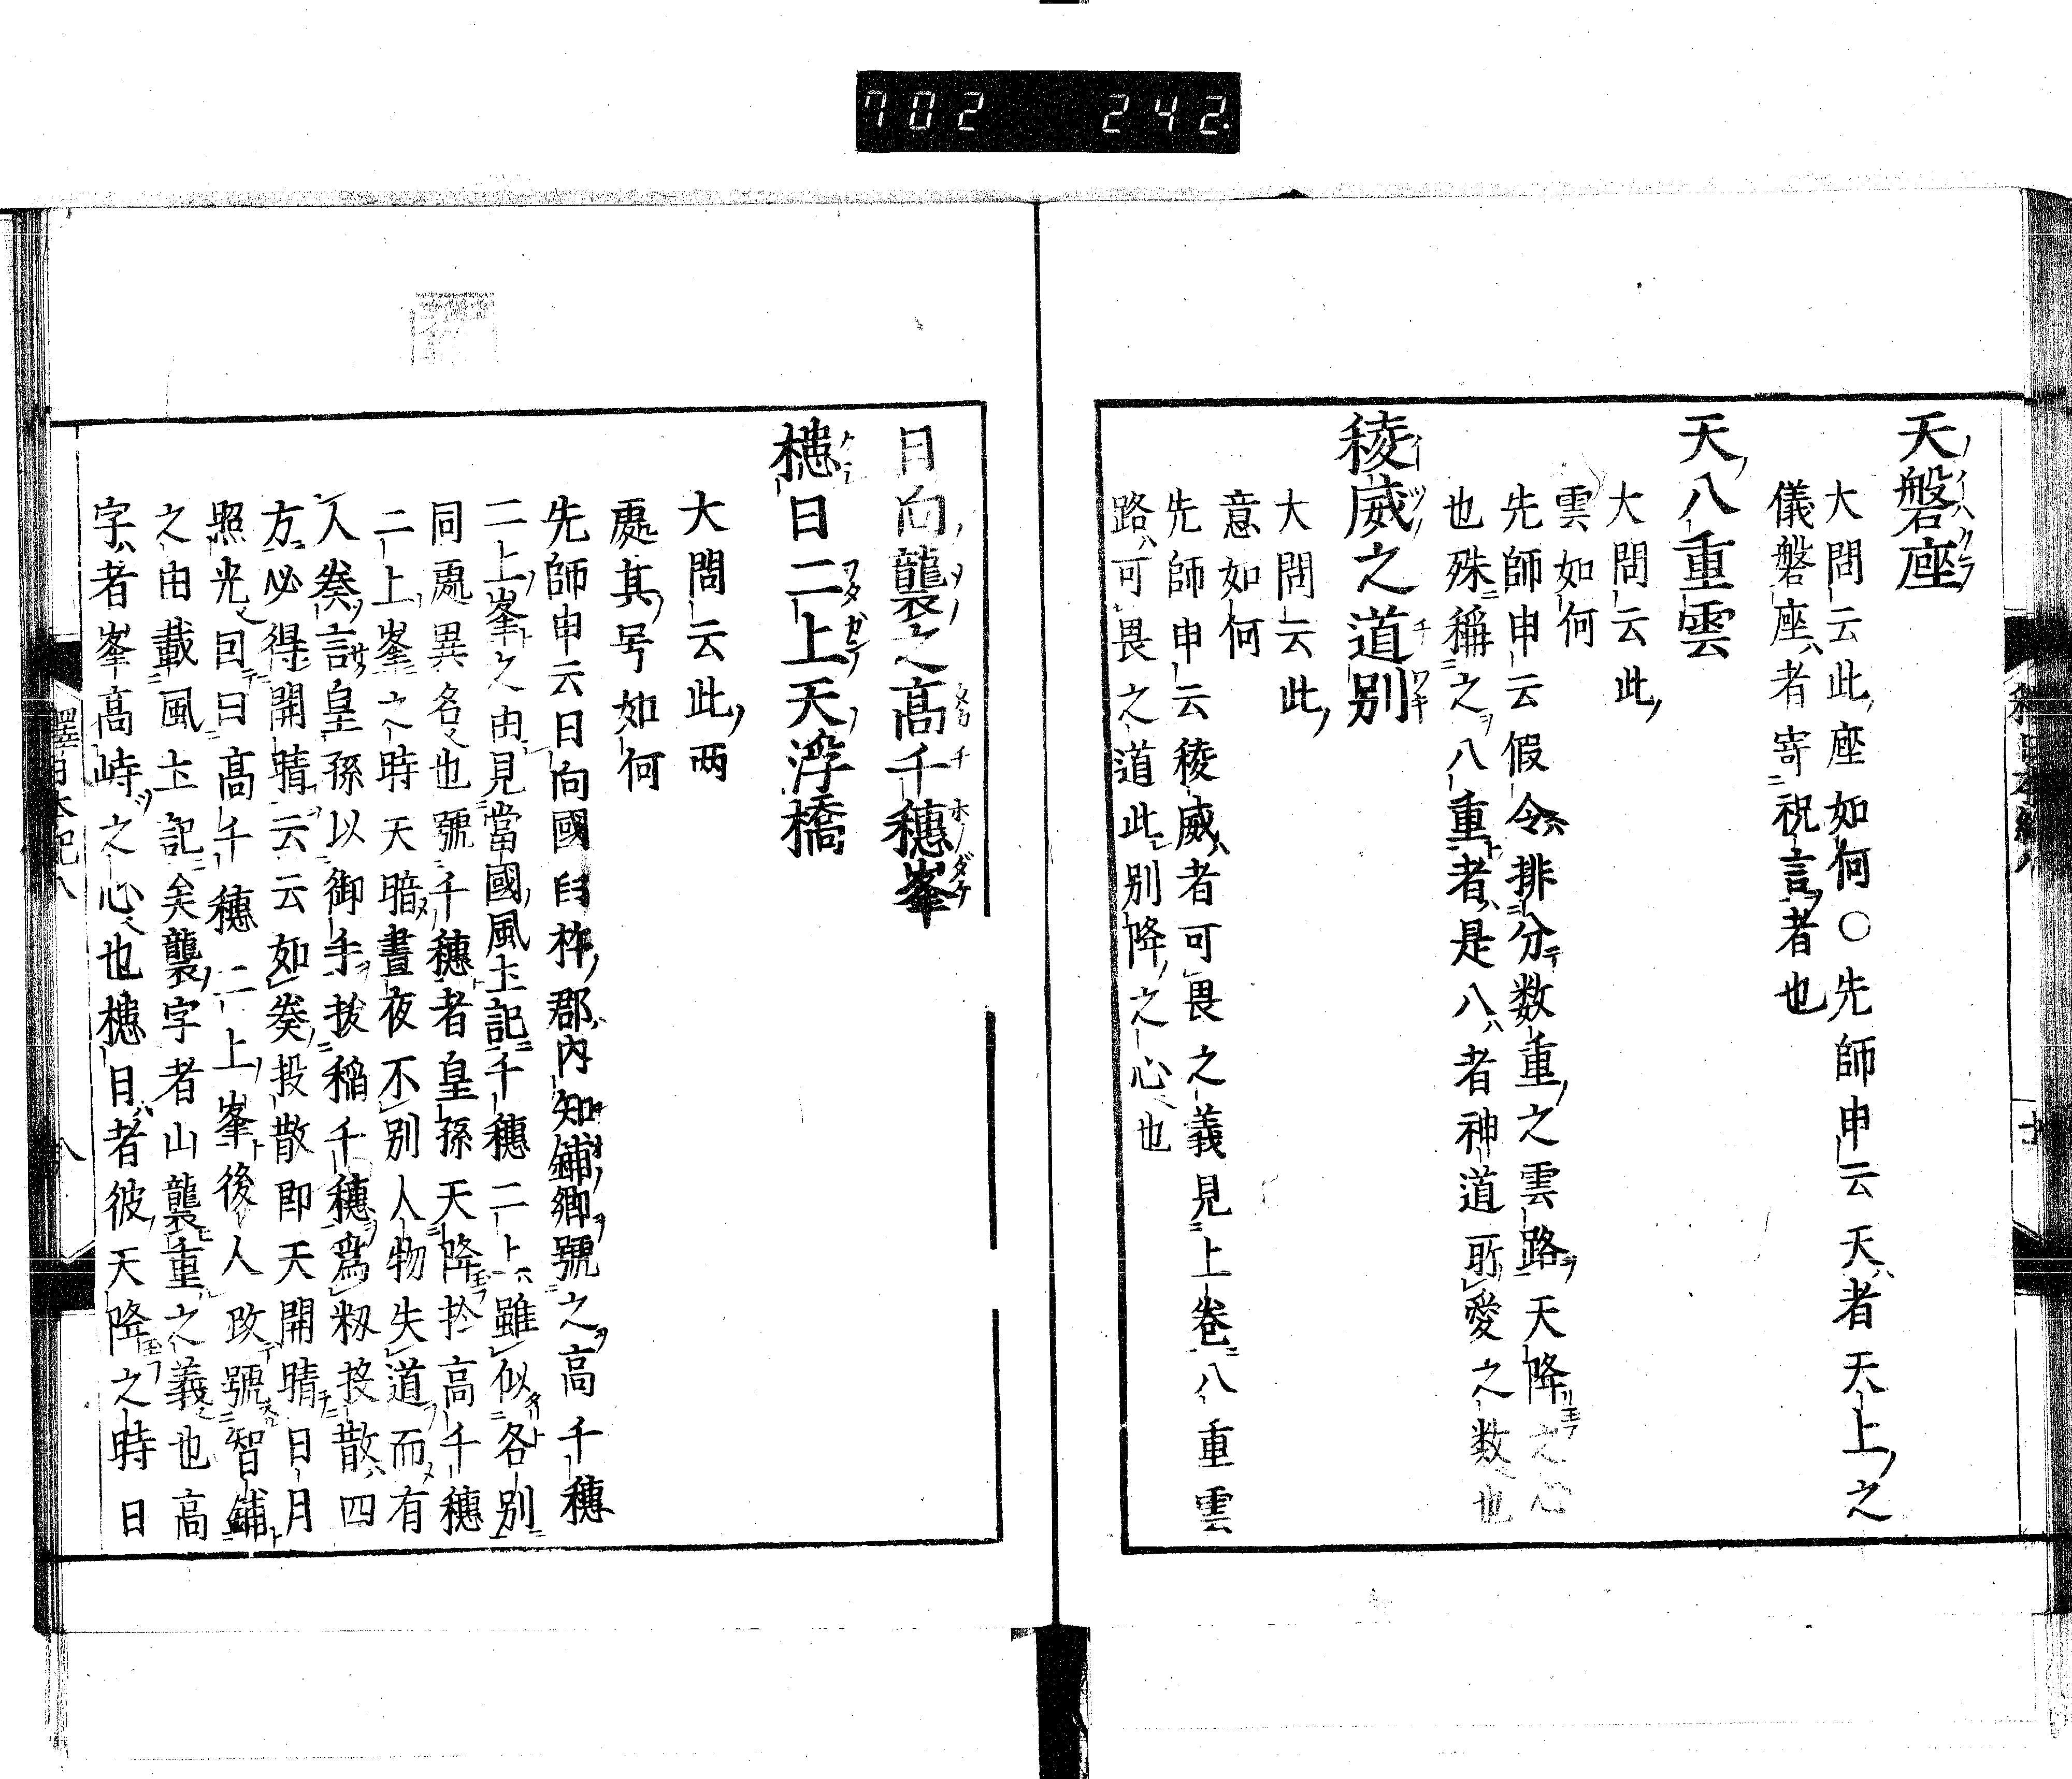 702 242.
天磐座
大問云此座如何○先師申云天者天上之
儀磐座者寄祝言者也
天八重雲
大問云此
雲如何
先師申云假令排分数重之雲路天降之心
也殊稱之八重者是八者神道所愛之数也
稜威之道別
大問云此
意如何
先師申云稜威者可畏之義見上卷八重雲
路可畏之道此別降之心也
日向襲之高千穗峯
槵日二上天浮橋
大問云此两
處其号如何
先師申云日向國臼杵郡内知鋪郷號之高千穗
二上峯之由見當國風土記千穗二上雖似各別
同處異名也號千穗者皇孫天降於高千穗
二上峯之時天暗晝夜不別人物失道而有
人奏言皇孫以御手拔稲千穗爲籾投散四
方必得開晴云云如奏投散即天開晴日月
照光因曰高千穗二上峯後人改號智鋪
之由載風土記矣襲字者山襲重之義也高
字者峯高峙之心也槵日者彼天降之時日
釋日本紀八 八